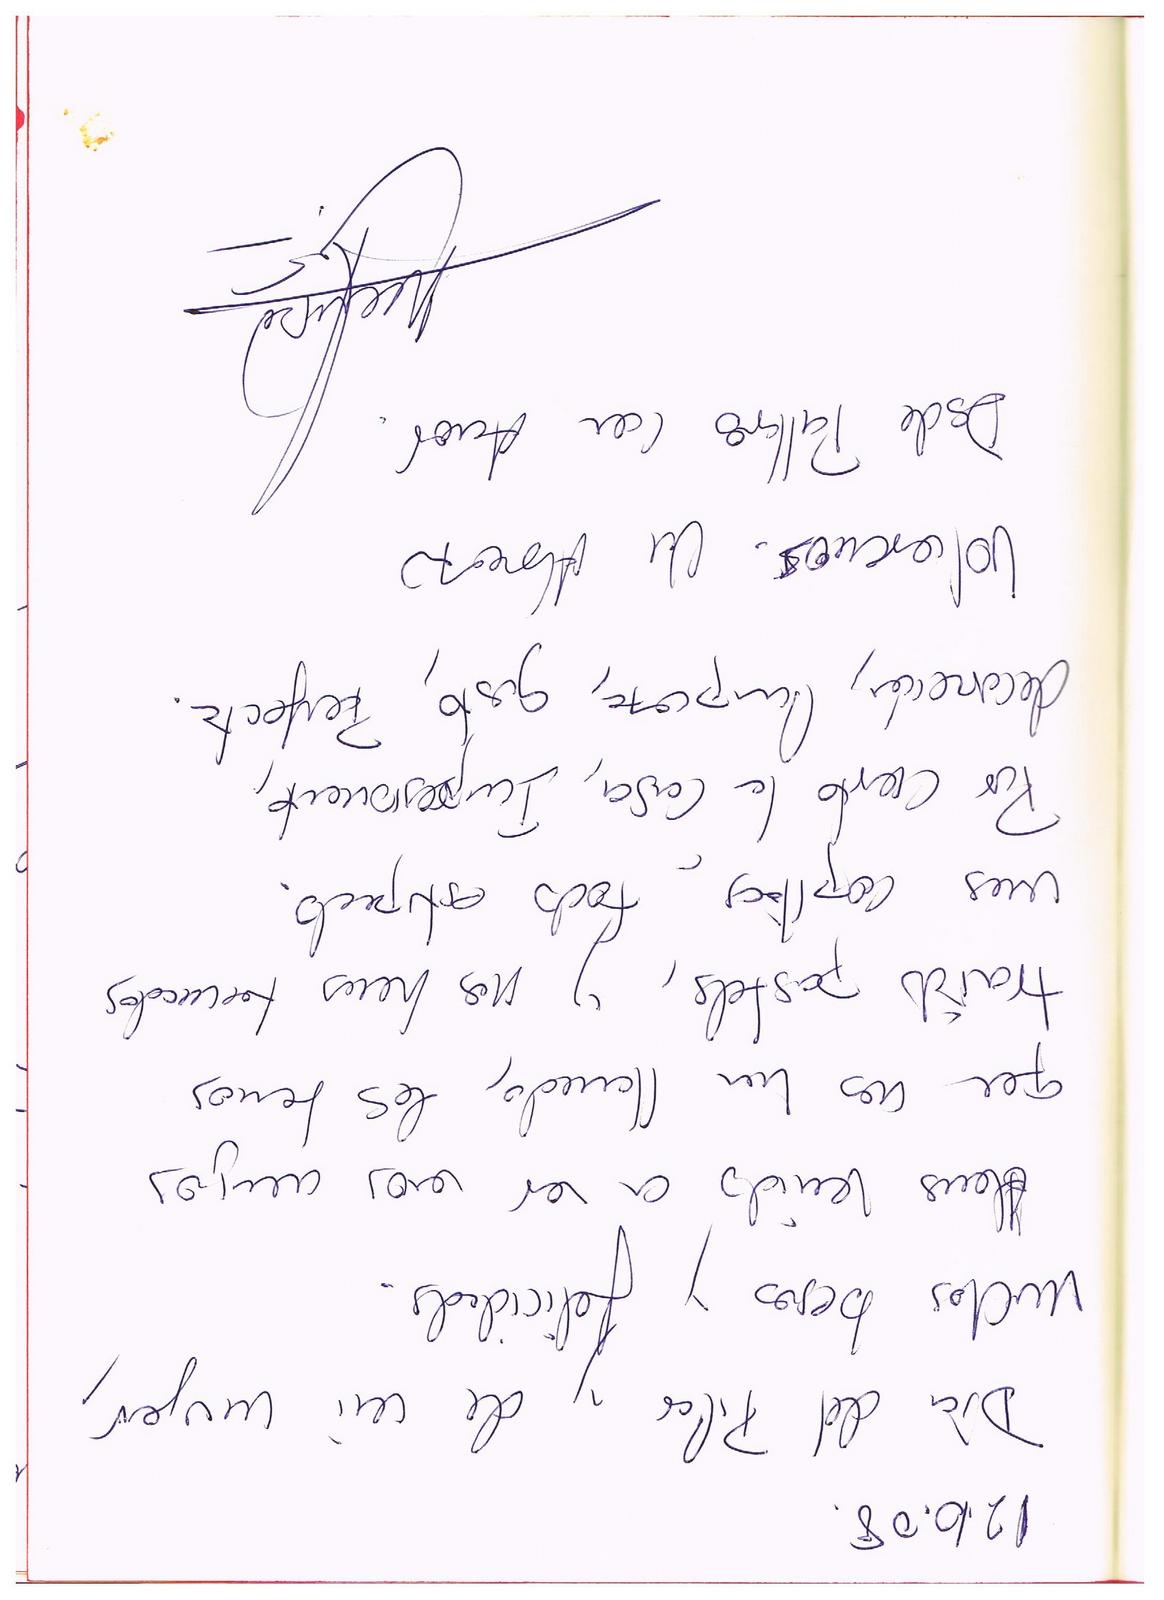 12.10.08.
Día del Pilar y de mi mujer,
Muchos besos y felicidades.
Hemos venido a ver unos amigos
que nos han llamado, les hemos
traído pasteles, y nos hemos tomado
unas copitas, todo estupendo.
Por cierto la casa, Impresionante,
decoración, limpieza, gusto, Perfecta.
Volveremos. Un Abrazo
Desde con Amor.